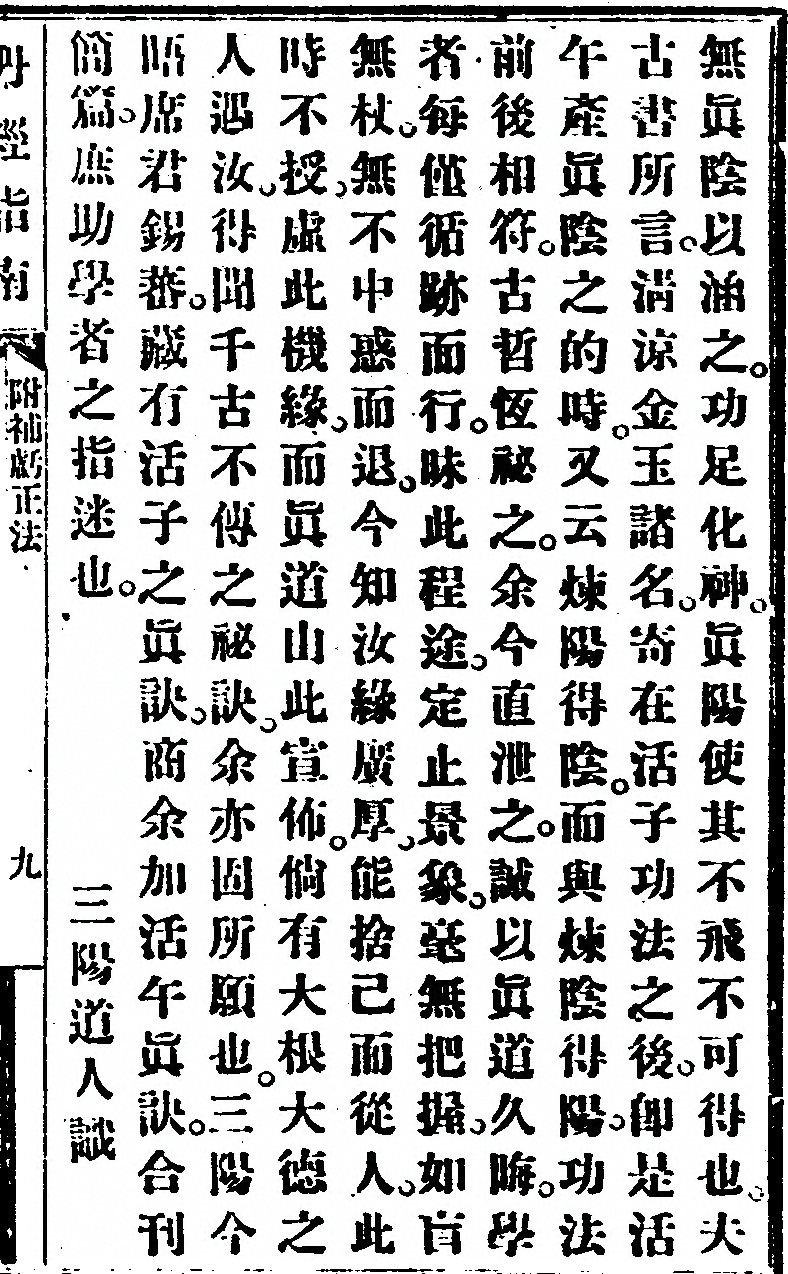 無眞陰以涵之。功足化神。眞陽使其不飛不可得也。夫
古書所言。淸涼金玉諸名。寄在活子功法之後。卽是活
午產眞陰之的時。又云煉陽得陰。而與煉陰得陽。功法
前後相符。古哲恆祕之。余今直泄之。誠以眞道久晦。學
者每僅循跡而行。昧此程途。定止景象。毫無把握。如盲
無杖。無不中惑而退。今知汝緣廣厚。能捨己而從人。此
時不授。虛此機緣。而眞道由此宣佈。倘有大根大德之
人遇汝。得聞千古不傳之祕訣。余亦固所願也。三陽今
晤席君錫蕃。藏有活子之眞訣。商余加活午眞訣。合刊
簡篇。庶助學者之指迷也。
三陽道人識
丹經指南
附補虧正法
九